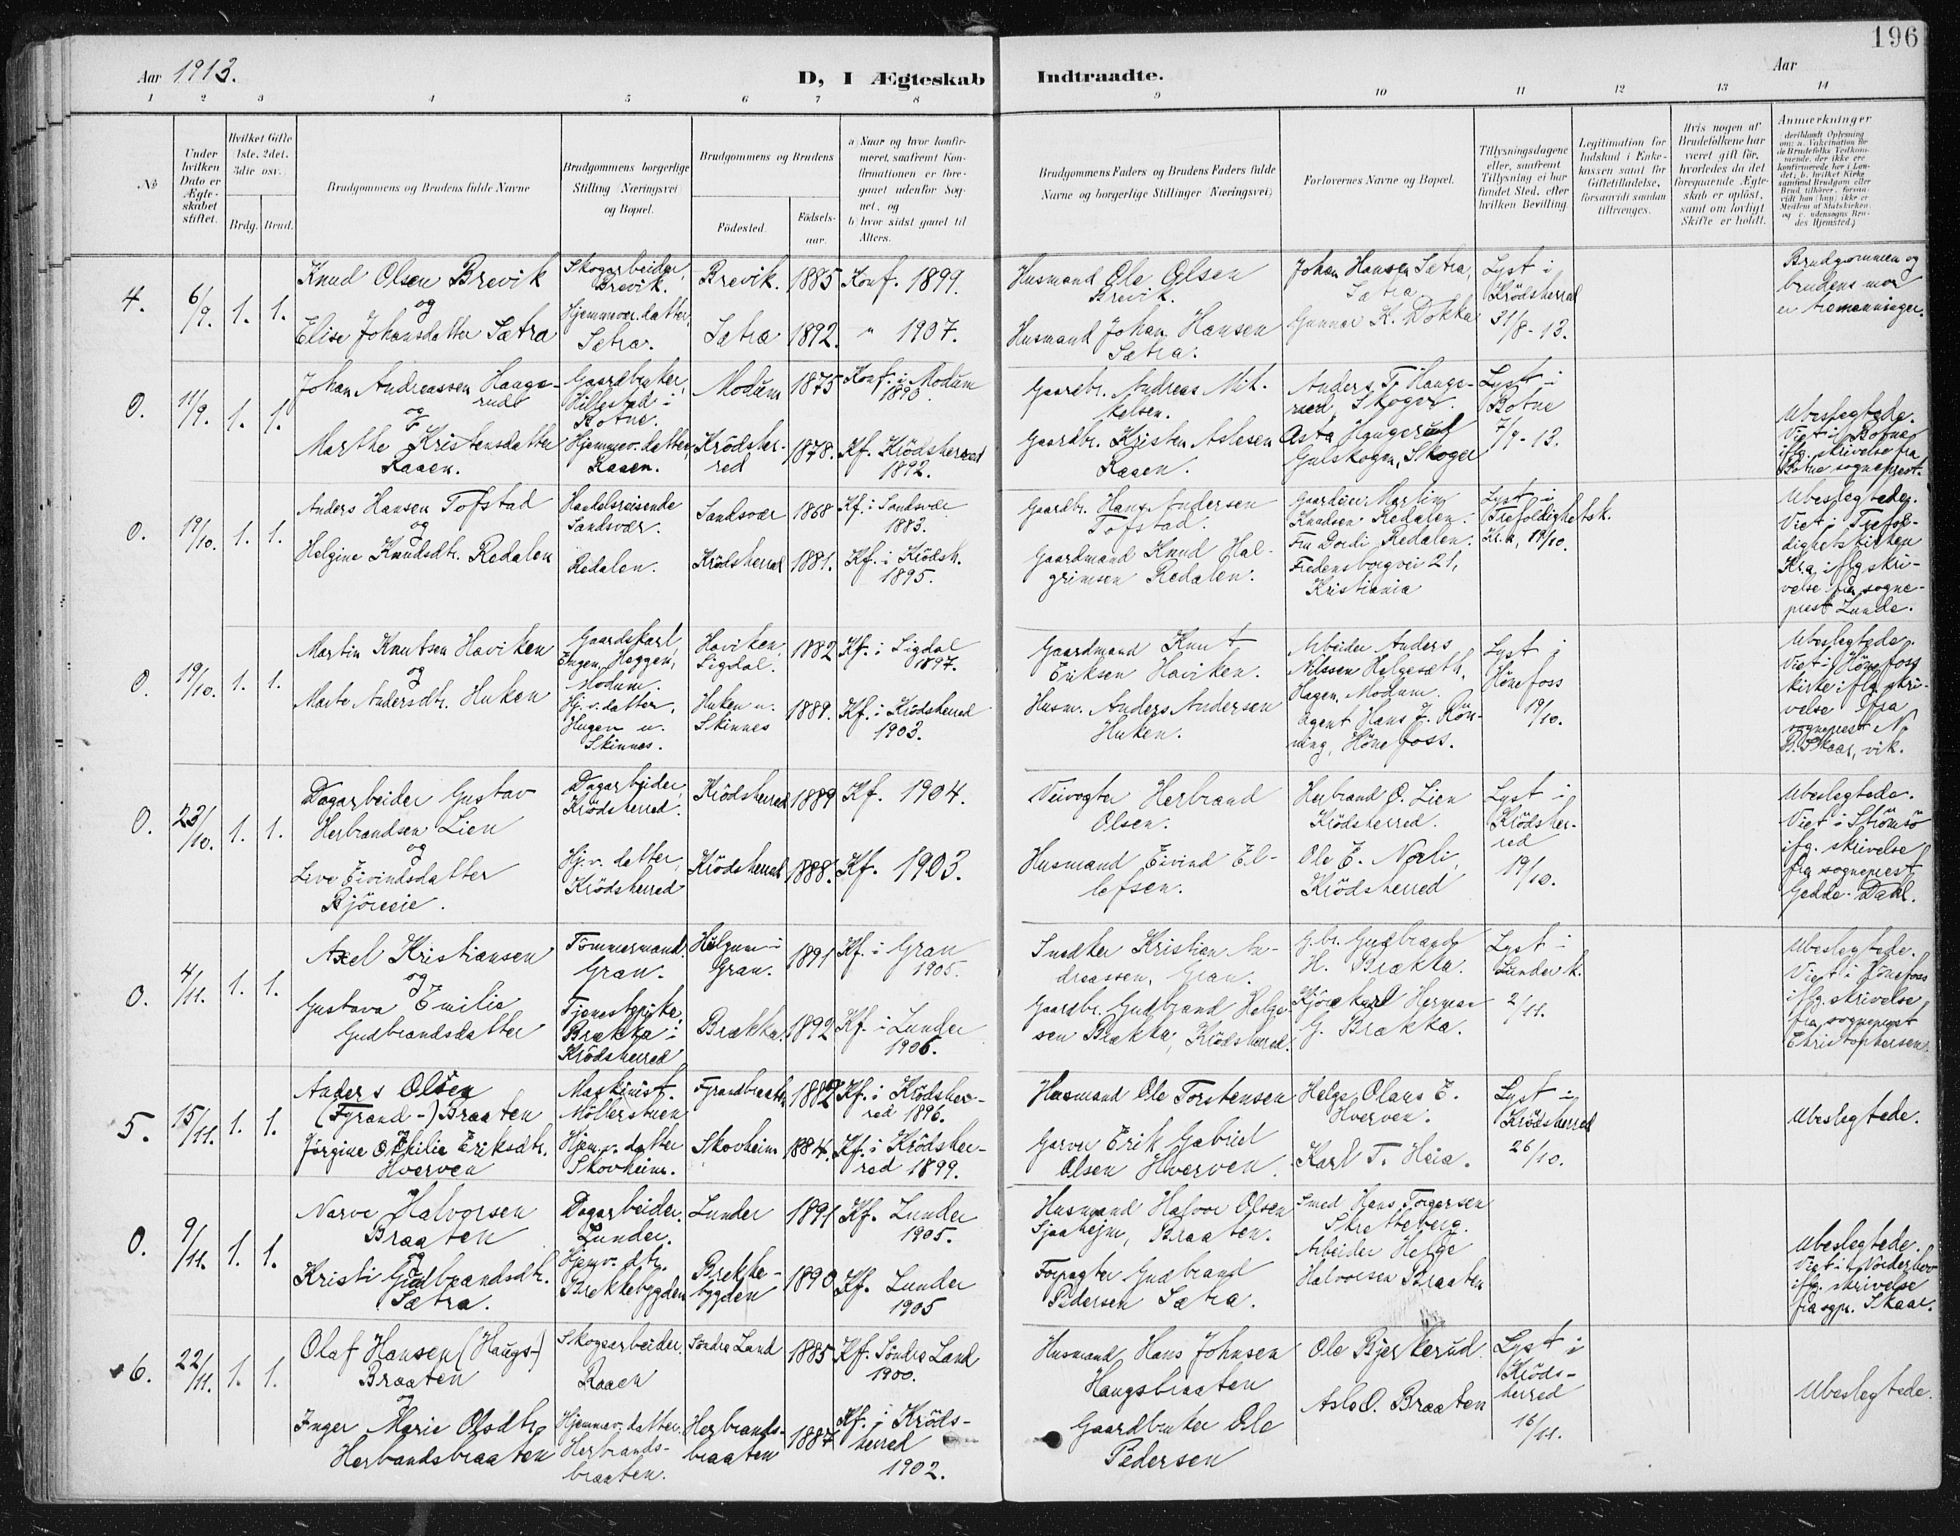 196
Aar 1913.
D, I Ægteskab Indtraadte.
Aar
1 2 3 4 5 6 7 8 9 10 11 12 13 14
No
Under hvilken Dato er Ægteskabet stiftet.
Hvilket Gifte 1ste, 2det, 3die osv.
Brdg. Brud.
Brudgommens og Brudens fulde Navne
Brudgommens borgerlige Stilling Næringsvei og Bopæl.
Brudgommens og Brudens
Födested.
Födselsaar.
a) Naar og hvor konfirmeret, saafremt Konfirmationen er foregaaet udenfor Sognet, og
b) hvor sidst gaaet til Alters.
Brudgommens Faders og Brudens Faders fulde Navne og borgerlige Stillinger Næringsvei)
Forlovernes Navne og Bopæl.
Tillysningsdagene eller, saafremt Tillysning ei har fundet Sted, efter hvilken Bevilling
Legitimation for Indskud i Enkekassen samt for Giftetilladelse, forsaavidt saadan tiltrænges.
Hvis nogen af Brudefolkene har været gift før, hvorledes da det foregaaende Ægteskab er opløst, samt om lovligt Skifte er holdt.
Anmærkninger
4. 6/9. 1. 1.
Knud Olsen Brevik
og
Elise Johansdatter Sætra
Skogarbeider, Brevik.
Hjemmev. datter, Sætra.
Brevik. 1885 Konf. 1899.
Sætra 1892. " 1907.
Husmand Ole Olsen Brevik.
Husmand Johan Hansen Sætra.
Johan Hansen Sætra, Sætra
Gunnar K. Dokka
Lyst i Krödsherred 31/8-13.
Brudgommen og brudens mor er tremenninger.
0. 11/9. 1. 1.
Johan Andreassen Haugsrud
og
Marthe Kristensdatter Raaen.
Gaardbruker, Hillestad i Botne.
Hjemmev. datter Raaen.
Modum 1875 Konf. i Modum 1890.
Krödsherred 1878. Kf. Krödsherred 1892.
Gaardbr. Andreas Mikkelsen.
Gaardbr. Kristen Aslesen Raaen.
Anders T. Haugerud, Skoger.
Asta Haugerud Gulskogen, Skoger
Lyst i Botne 7/9-13.
Ubeslegtede. Viet i Botne iflg. skrivelse fra Botne sogneprest.
0. 19/10. 1. 1.
Anders Hansen Tofstad
og
Helgine Knudsdtr. Redalen
Handelsreisende Sandsvær.
Redalen.
Sandsvær 1868 Kf. i Sandsvær 1883.
Krödsherred 1881. Kf. i Krödsh. 1895.
Gaardbr. Hans Andersen Tofstad.
Gaardmand Knud Halgrimsen Redalen.
Gaardeier Martin Knudsen Redalen.
Fru Dordi Redalen.
Fredensborgvei 21, Kristiania
Lyst i Trefoldighetsk. Kr.a, 19/10.
Ubeslegtede. Viet i Trefoldighetskirken Kr.a iflg skrivelse fra sogneprest Lunde.
0. 19/10. 1. 1.
Martin Knutsen Haviken
og
Marte Andersdtr. Huken
Gaardskarl, Engen, Heggen, Modum.
Hj.v. datter, Hugen u. Skinnes.
Haviken, Sigdal. 1882 Kf. i Sigdal 1897.
Huken u. Skinnes 1889. Kf. i Krödsherred 1903.
Gaardmand Knut Eriksen Haviken.
Husm. Anders Andersen Huken.
Arbeider Anders Nilssen Helgeseth, Hagen, Modum.
Agent Hans J. Rönning, Hönefoss.
Lyst i Hönefoss 19/10.
Ubeslegtede. Viet i Hönefoss kirke iflg. skrivelse fra sogneprest N. B. Skaar, vik.
0. 23/10. 1. 1.
Dagarbeider Gustav Herbrandsen Lien
og
Live Eivindsdatter Björeie.
Dagarbeider, Krödsherred.
Hj.v. datter, Krödsherred
Krödsherred 1889 Kf. 1904.
Krödsherred 1888. Kf. 1903.
Veivogter Herbrand Olsen.
Husmand Eivind Ellefsen.
Herbrand O. Lien Krödsherred.
Ole E. Norli, Krödsherred
Lyst i Krödsherred 19/10.
Ubeslegtede. Viet i Strömsö ifg. skrivelse fra sogneprest Gedde-Dahl.
0. 4/11. 1. 1.
Axel Kristiansen
og
Gustava Emilie Gudbrandsdatter
Tømmermand. Gran.
Tjenestepike, Brækka i Krödsherred
Gran. 1891 Kf. i Gran 1905.
Brækka. 1892 Kf. i Lunder 1906.
Snedker Kristian Andreassen, Gran.
Gaardbr. Gudbrand Helgesen Brækka, Krödsherred.
G.br. Gudbrand H. Brækka.
Kjörekarl Herman G. Brækka.
Lyst i Lunder k. 2/11.
Ubeslegtede. Viet i Hönefoss iflg. skrivelse fra sogneprest Christophersen.
5. 15/11. 1. 1.
Anders Olsen (Fyrand-) Braaten
og
Jörgine Otilie Eriksdtr. Hverven
Maskinist. Möllerstuen
Hjem.v. datter Skovheim.
Fyrandbraaten 1882 Kf. i Krödsherred 1896.
Skovheim 1884. Kf. i Krödsherred 1899.
Husmand Ole Torstensen
Garver Erik Gabriel Olsen Hverven.
Helge Olaus E. Hverven.
Karl T. Heia.
Lyst i Krödsherred 26/10.
Ubeslegtede.
0. 9/11. 1. 1.
Narve Halvorsen Braaten
og
Kristi Gudbrandsdtr. Sætra.
Dagarbeider. Lunder.
Hjemv. dtr. Brekkebygden
Lunder 1891 Kf. Lunder 1905.
Brekkebygden 1890 Kf. Lunder 1905
Husmand Halvor Olsen Sjaaheim, Braaten.
Forpagter Gudbrand Pedersen Sætra.
Smed Hans Torgersen Skretteberg.
Arbeider Helge Halvorsen Braaten
Ubeslegtede. Viet i Norderhov iflg. skrivelse fra sgpr. Skaar.
6. 22/11. 1. 1.
Olaf Hansen (Haugs-) Braaten
og
Inger Marie Olsdtr. Herbandsbraaten
Skogsarbeider. Raaen
Hjemmev. datter. Herbrandsbraaten.
Söndre Land 1885 Kf. Söndre Land 1900.
Herbrandsbraaten 1887 Kf. i Krödsherred 1902.
Husmand Hans Johnsen Haugsbraaten
Gaardbruker Ole Pedersen
Ole Bjerkerud.
Asle O. Braaten
Lyst i Krödsherred 16/11.
Ubeslegtede.